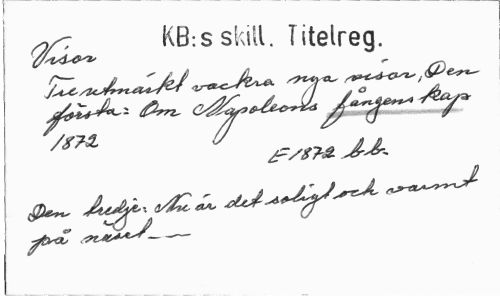 KB:s skill. Titelreg.
Visor
Tre utmärkt vackra nya visor, Den
första: Om Napoleons fångenskap
1872
E 1872 bb.
Den tredje: Nu är det soligt och varmt
på näset